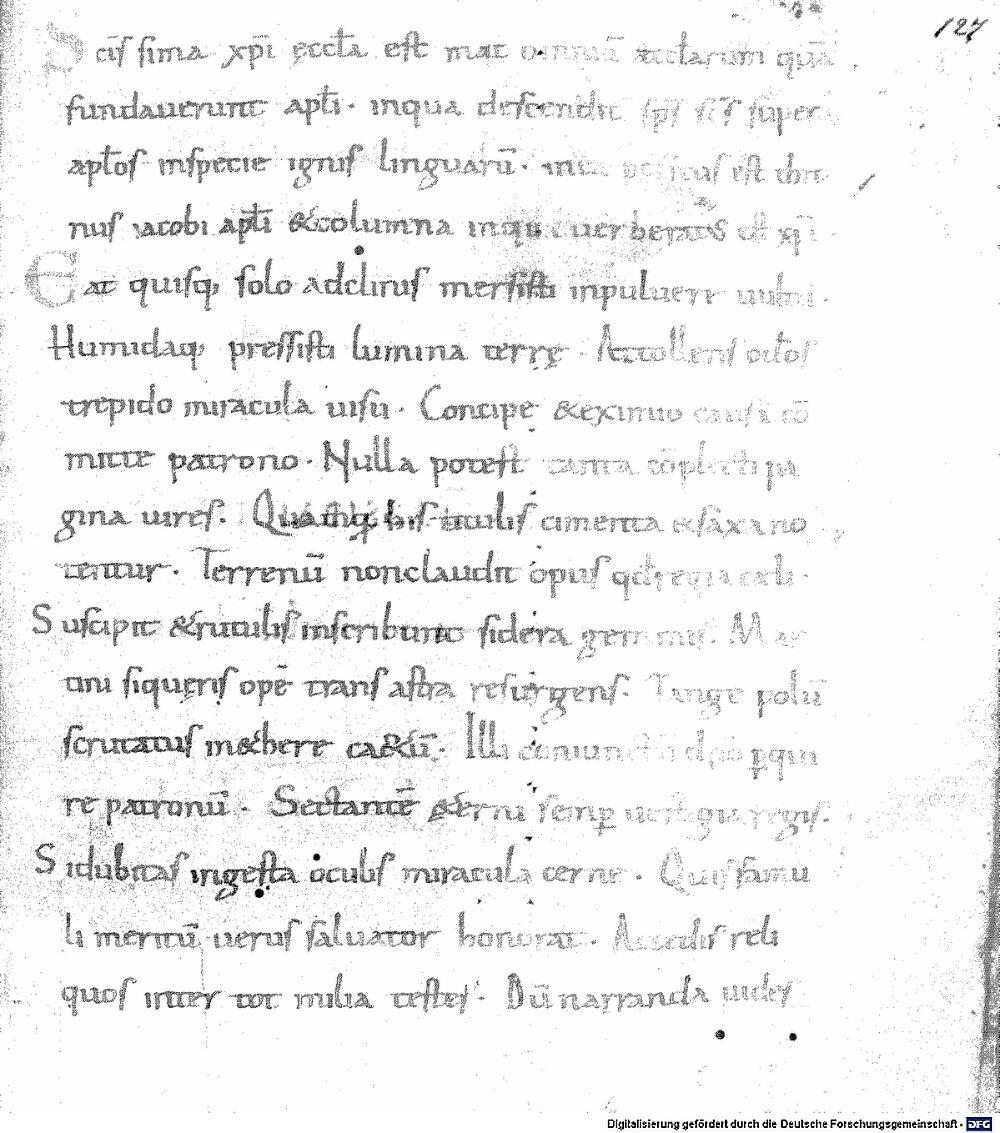 127
Scis sima xpi ęccła est mat omniū ęcclarum quā
fundauerunt apłi · inqua descendit sps scs super
apłos inspecie ignis linguarū · inea positus est thro
nus iacobi apłi &columna inqua uerberatus est xps
Eat quisq; solo adclinis mersisti inpuluere uultū ·
Humidaq; pressisti lumina terrę · Attollens ocłos
trepido miracula uisu · Concipe &eximio causā cō
mitte patrono · Nulla potest tanta cōplecti pa
gina uires · Quamqꝫ his titulis cimenta &saxa no
tentur · Terrenū nonclaudit opus qd regia caeli ·
Suscipit &rutulis inscribunt sidera gemmis · Mar
tini siqueris opē trans astra resurgens · Tange polū
scrutatus m&here ca&ū · Illi coniunctū
re patronū · Sectantē &erni semp uestigia regis ·
Sidubitas ingesta oculis miracula cerne · Quis famu
li meritū uerus saluator honorat · Accedis reli
quos inter tot milia testes · Dū narranda uides
Digitalisierung gefördert durch die Deutsche Forschungsgemeinschaft - DFG